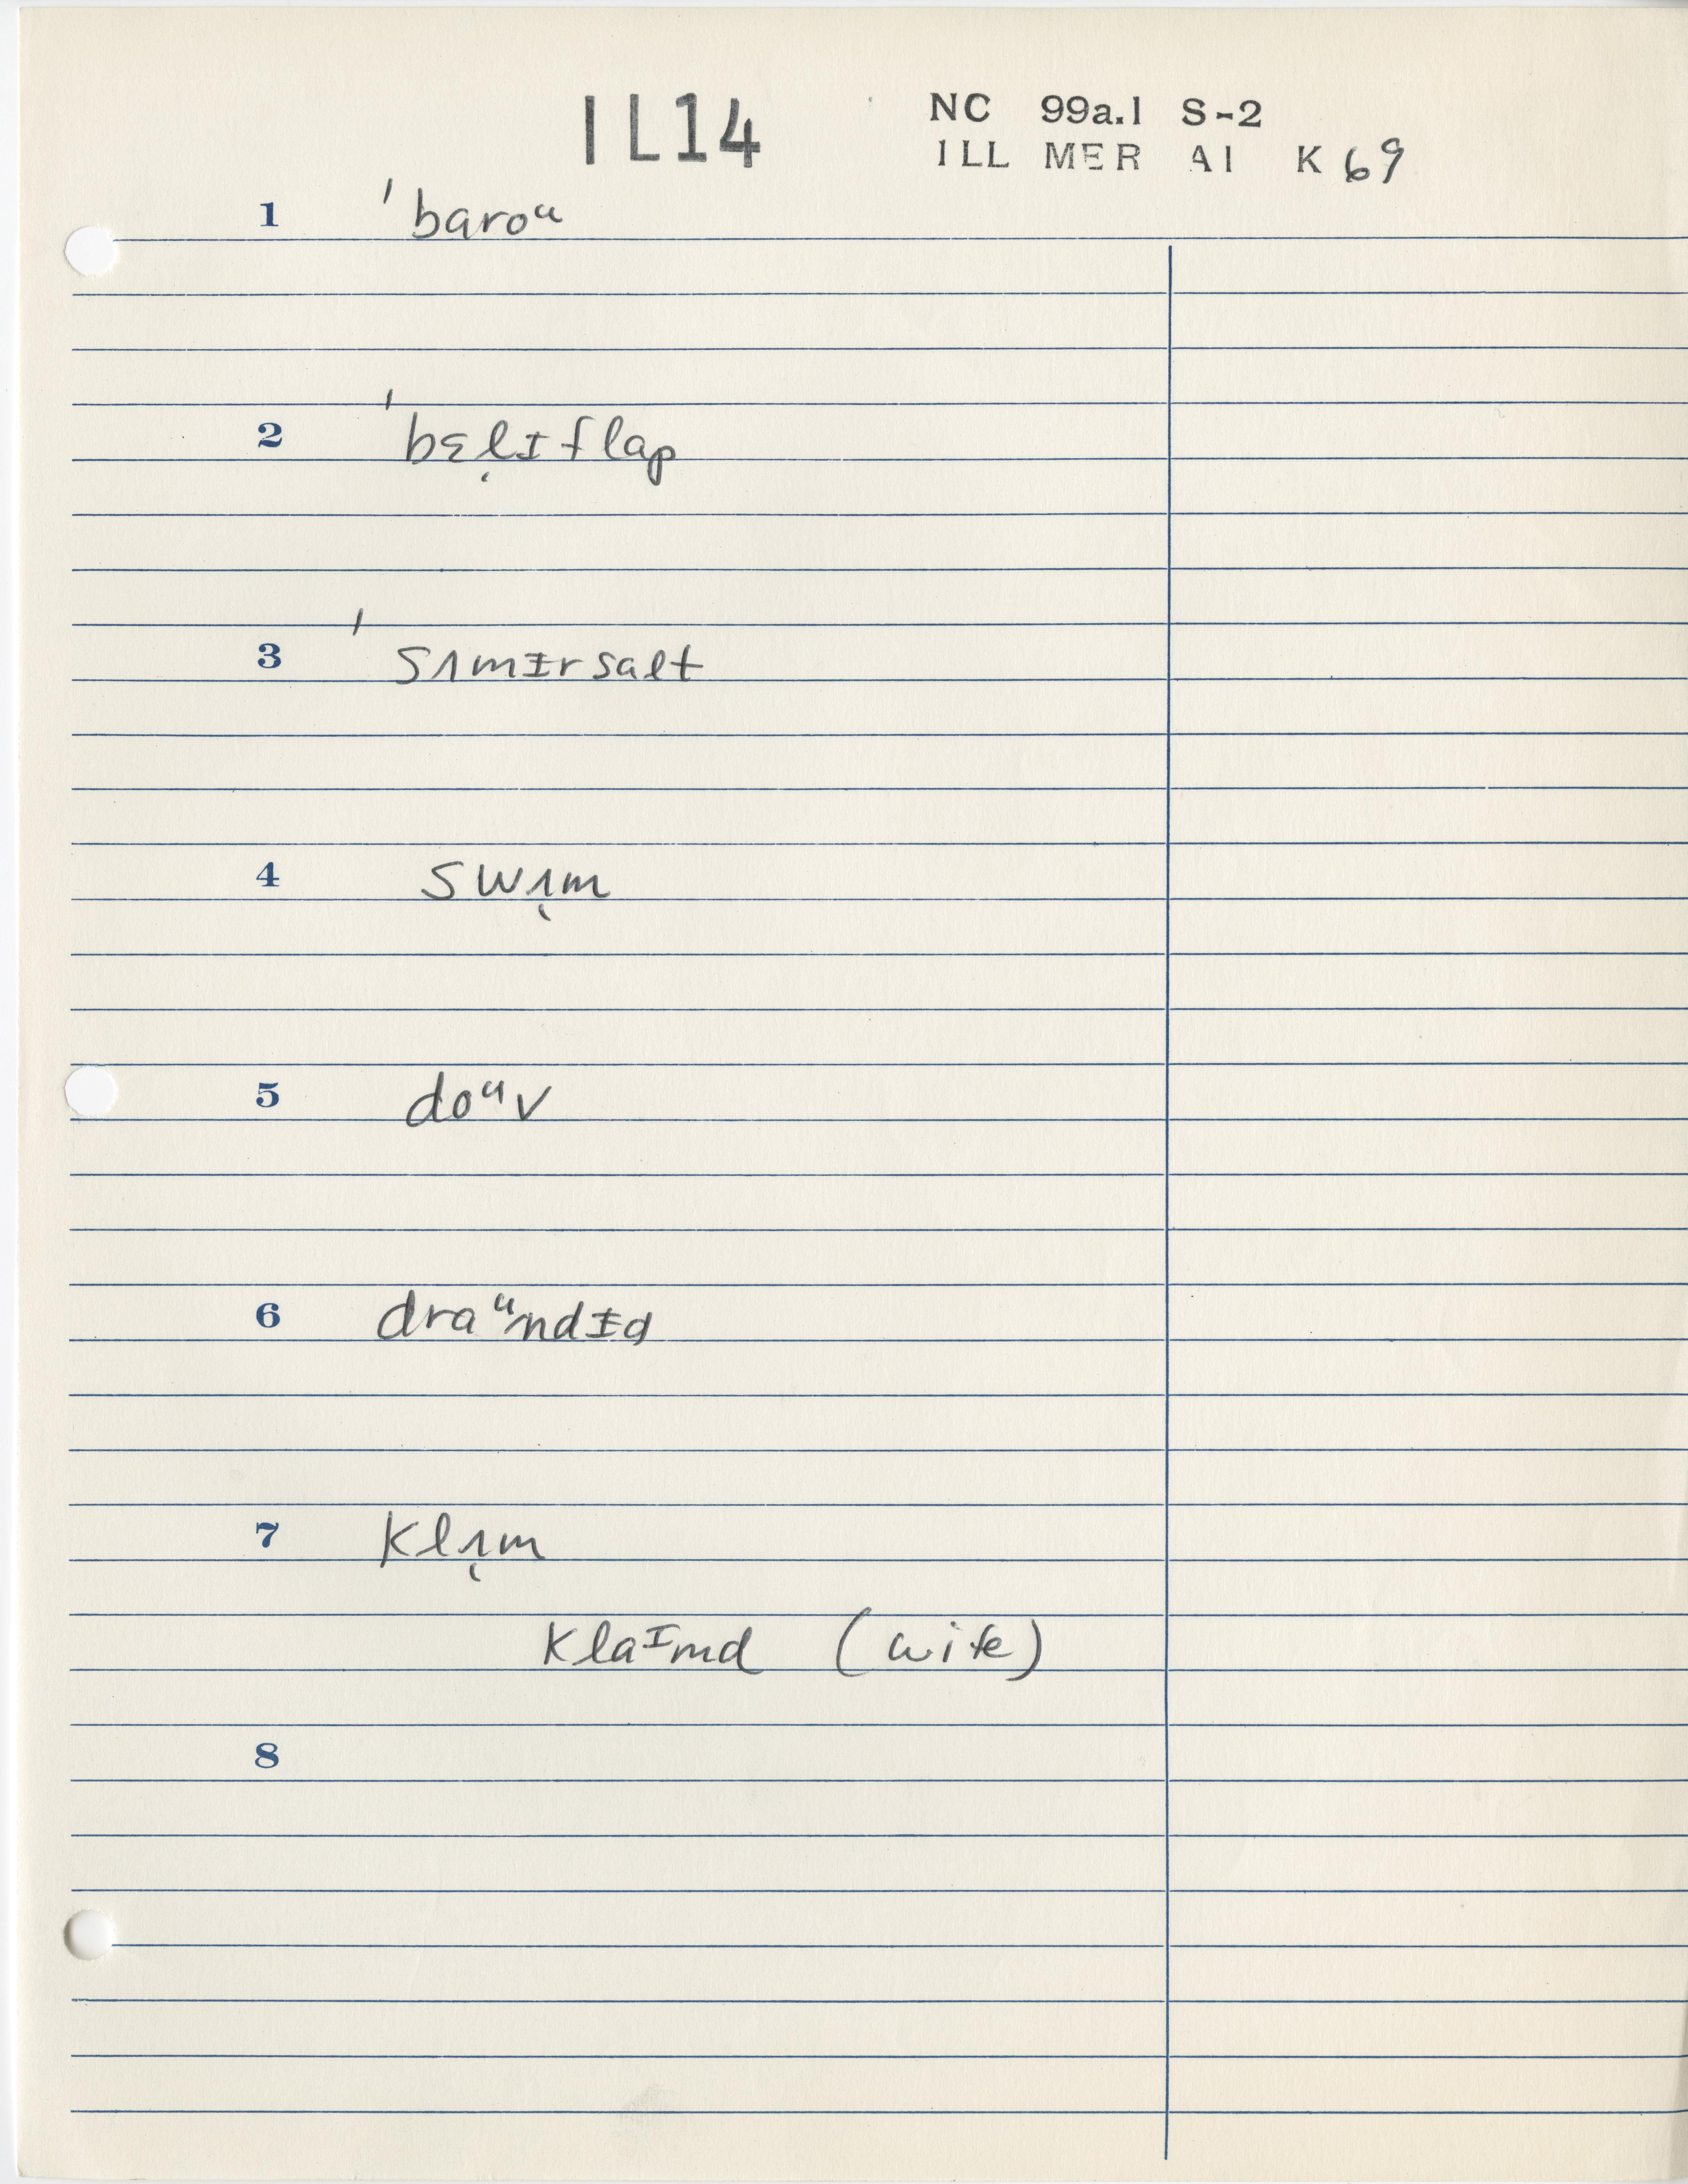 IL14
NC 99a.1 S-2
ILL MER A1 K69
1 ˈbaroᵘ
2 ˈbɛl̜ɨflap
3 ˈsʌmɨrsalt
4 swʌ̜m
5 doᵘv
6 draᵘndɨd
7 klʌ̜m
klaᶦmd (wife)
8